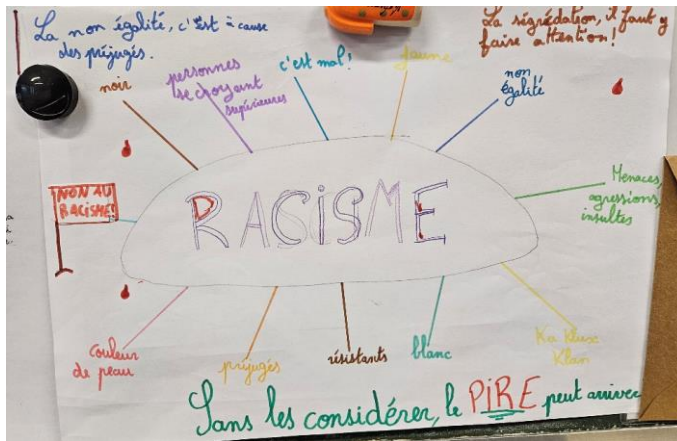 La non égalité, c'est à cause
des préjugés.
La ségrédation, il faut y
faire attention!
noir
personnes
se choyant
supérieures
c'est mal!
jaune
non
égalité
NON AU
RACISME!
RACISME
Menaces,
agressions,
insultes
couleur
de peau
préjugés
résistants
blanc
Ka Klux
Klan
Sans les considérer, le PIRE peut arriver